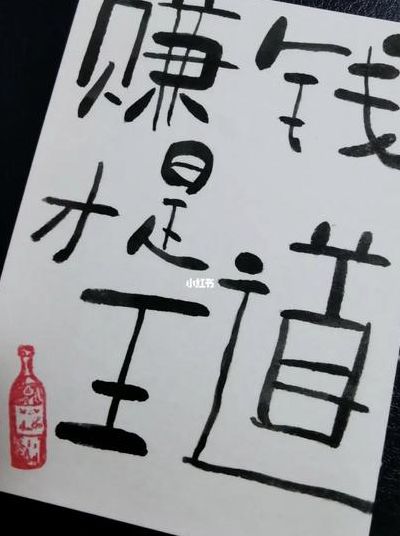 赚钱
才是
王道
小红书